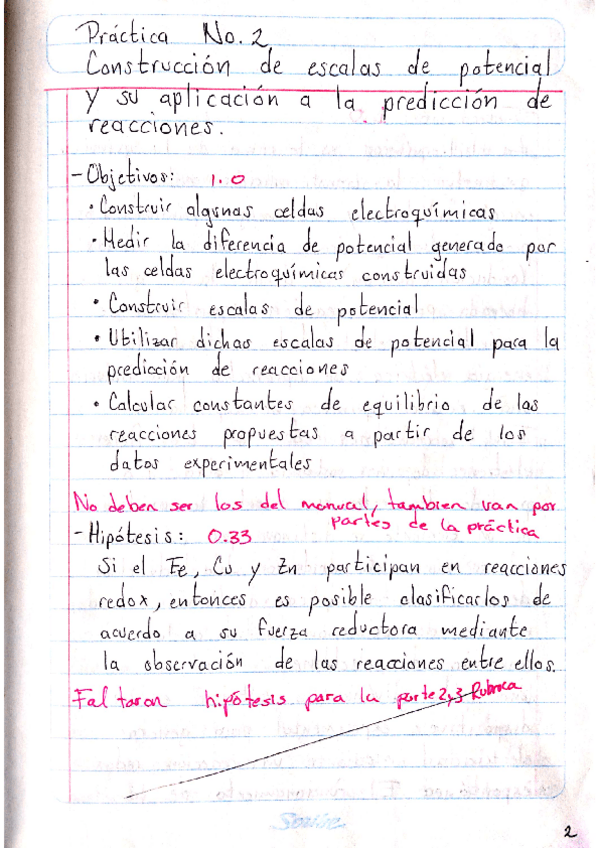 Práctica No. 2
Construcción de escalas de potencial
y su aplicación a la predicción de
reacciones.
- Objetivos: 1.0
• Construir algunas celdas electroquímicas
• Medir la diferencia de potencial generado por
las celdas electroquímicas construidas
• Construir escalas de potencial
• Utilizar dichas escalas de potencial para la
predicción de reacciones
• Calcular constantes de equilibrio, de las
reacciones propuestas a partir de los
datos experimentales
No deben ser los del manual, tambien van por
partes de la práctica
- Hipótesis: 0.33
Si el Fe, Cu y Zn participan en reacciones
redox, entonces es posible clasificarlos de
acuerdo a su fuerza reductora mediante
la observación de las reacciones entre ellos.
Faltaron hipótesis para la parte 2 y 3 Rubrica
Scribe
2